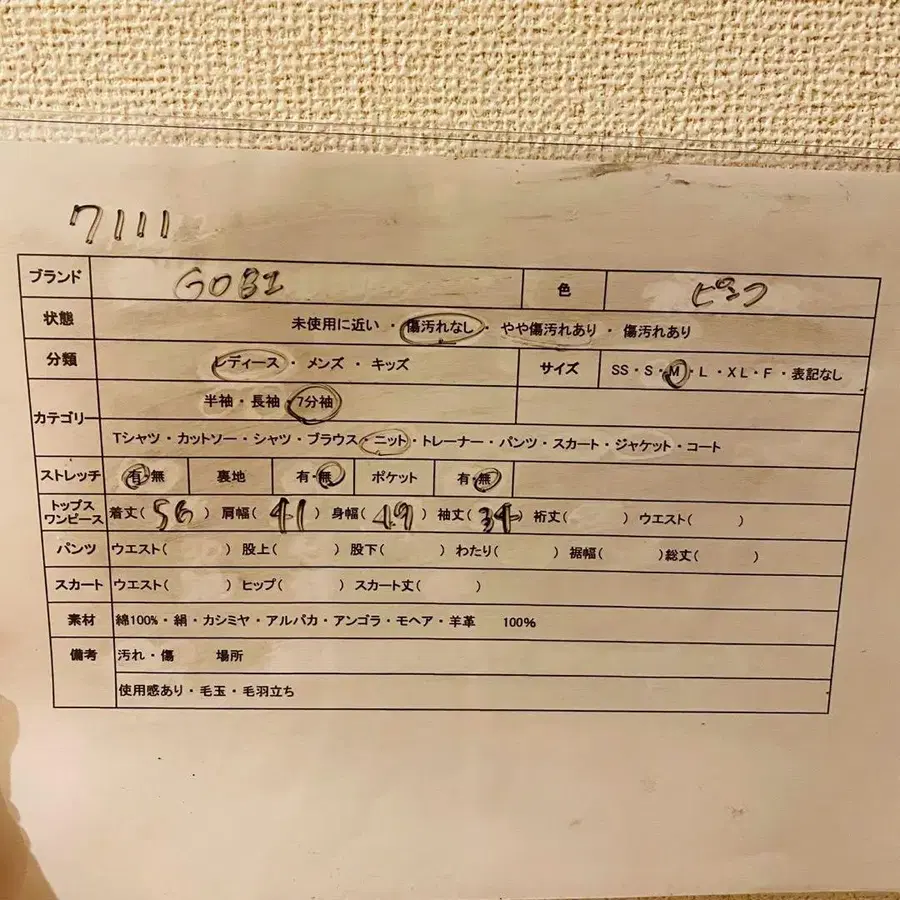 7111
ブランド GOBI 色 ピンク
状態 未使用に近い・傷汚れなし・やや傷汚れあり・傷汚れあり
分類 レディース・メンズ・キッズ サイズ SS・S・M・L・XL・F・表記なし
カテゴリー 半袖・長袖・7分袖
Tシャツ・カットソー・シャツ・ブラウス・ニット・トレーナー・パンツ・スカート・ジャケット・コート
ストレッチ 有・無 裏地 有・無 ポケット 有・無
トップス ワンピース 着丈(56) 肩幅(41) 身幅(49) 袖丈(34) 裄丈( ) ウエスト( )
パンツ ウエスト( ) 股上( ) 股下( ) わたり( ) 裾幅( ) 総丈( )
スカート ウエスト( ) ヒップ( ) スカート丈( )
素材 綿100%・絹・カシミヤ・アルパカ・アンゴラ・モヘア・羊革 100%
備考 汚れ・傷 場所
使用感あり・毛玉・毛羽立ち